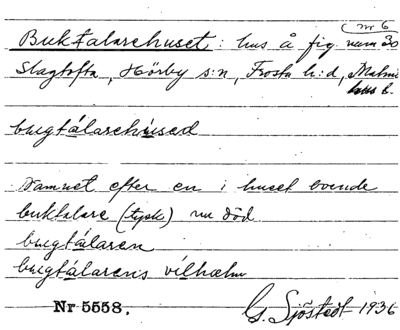 nr 6
Buktalarehuset: hus å fig. num 30
Slagtofta, Hörby s:n, Frosta h:d, Malmö
hus l.
bugtálarehúsed
Namnet efter en i huset boende
buktalare (tysk) nu död
bugtálaren
bugtálarens vilhælm
Nr 5558.
G. Sjöstedt 1936